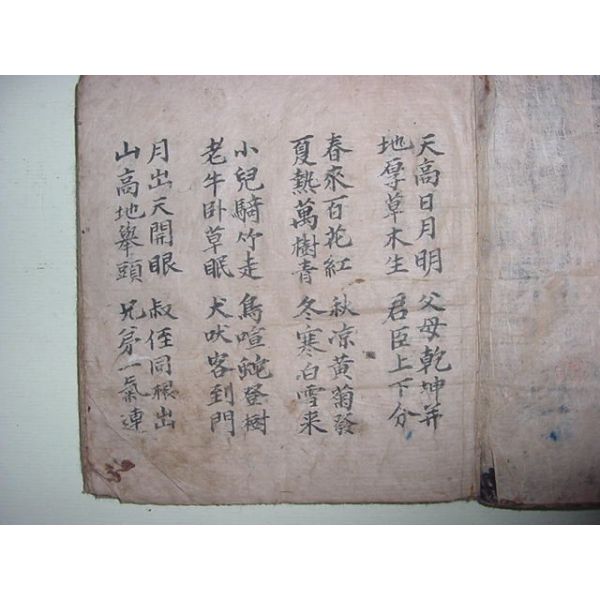 天高日月明
地厚草木生
父母乾坤并
君臣上下分
春來百花紅
夏熱萬樹青
秋凉黃菊發
冬寒白雪来
小兒騎竹走
老牛卧草眠
鳥喧蛇登樹
犬吠客到門
月出天開眼
山高地舉頭
叔侄同根出
兄弟一氣連